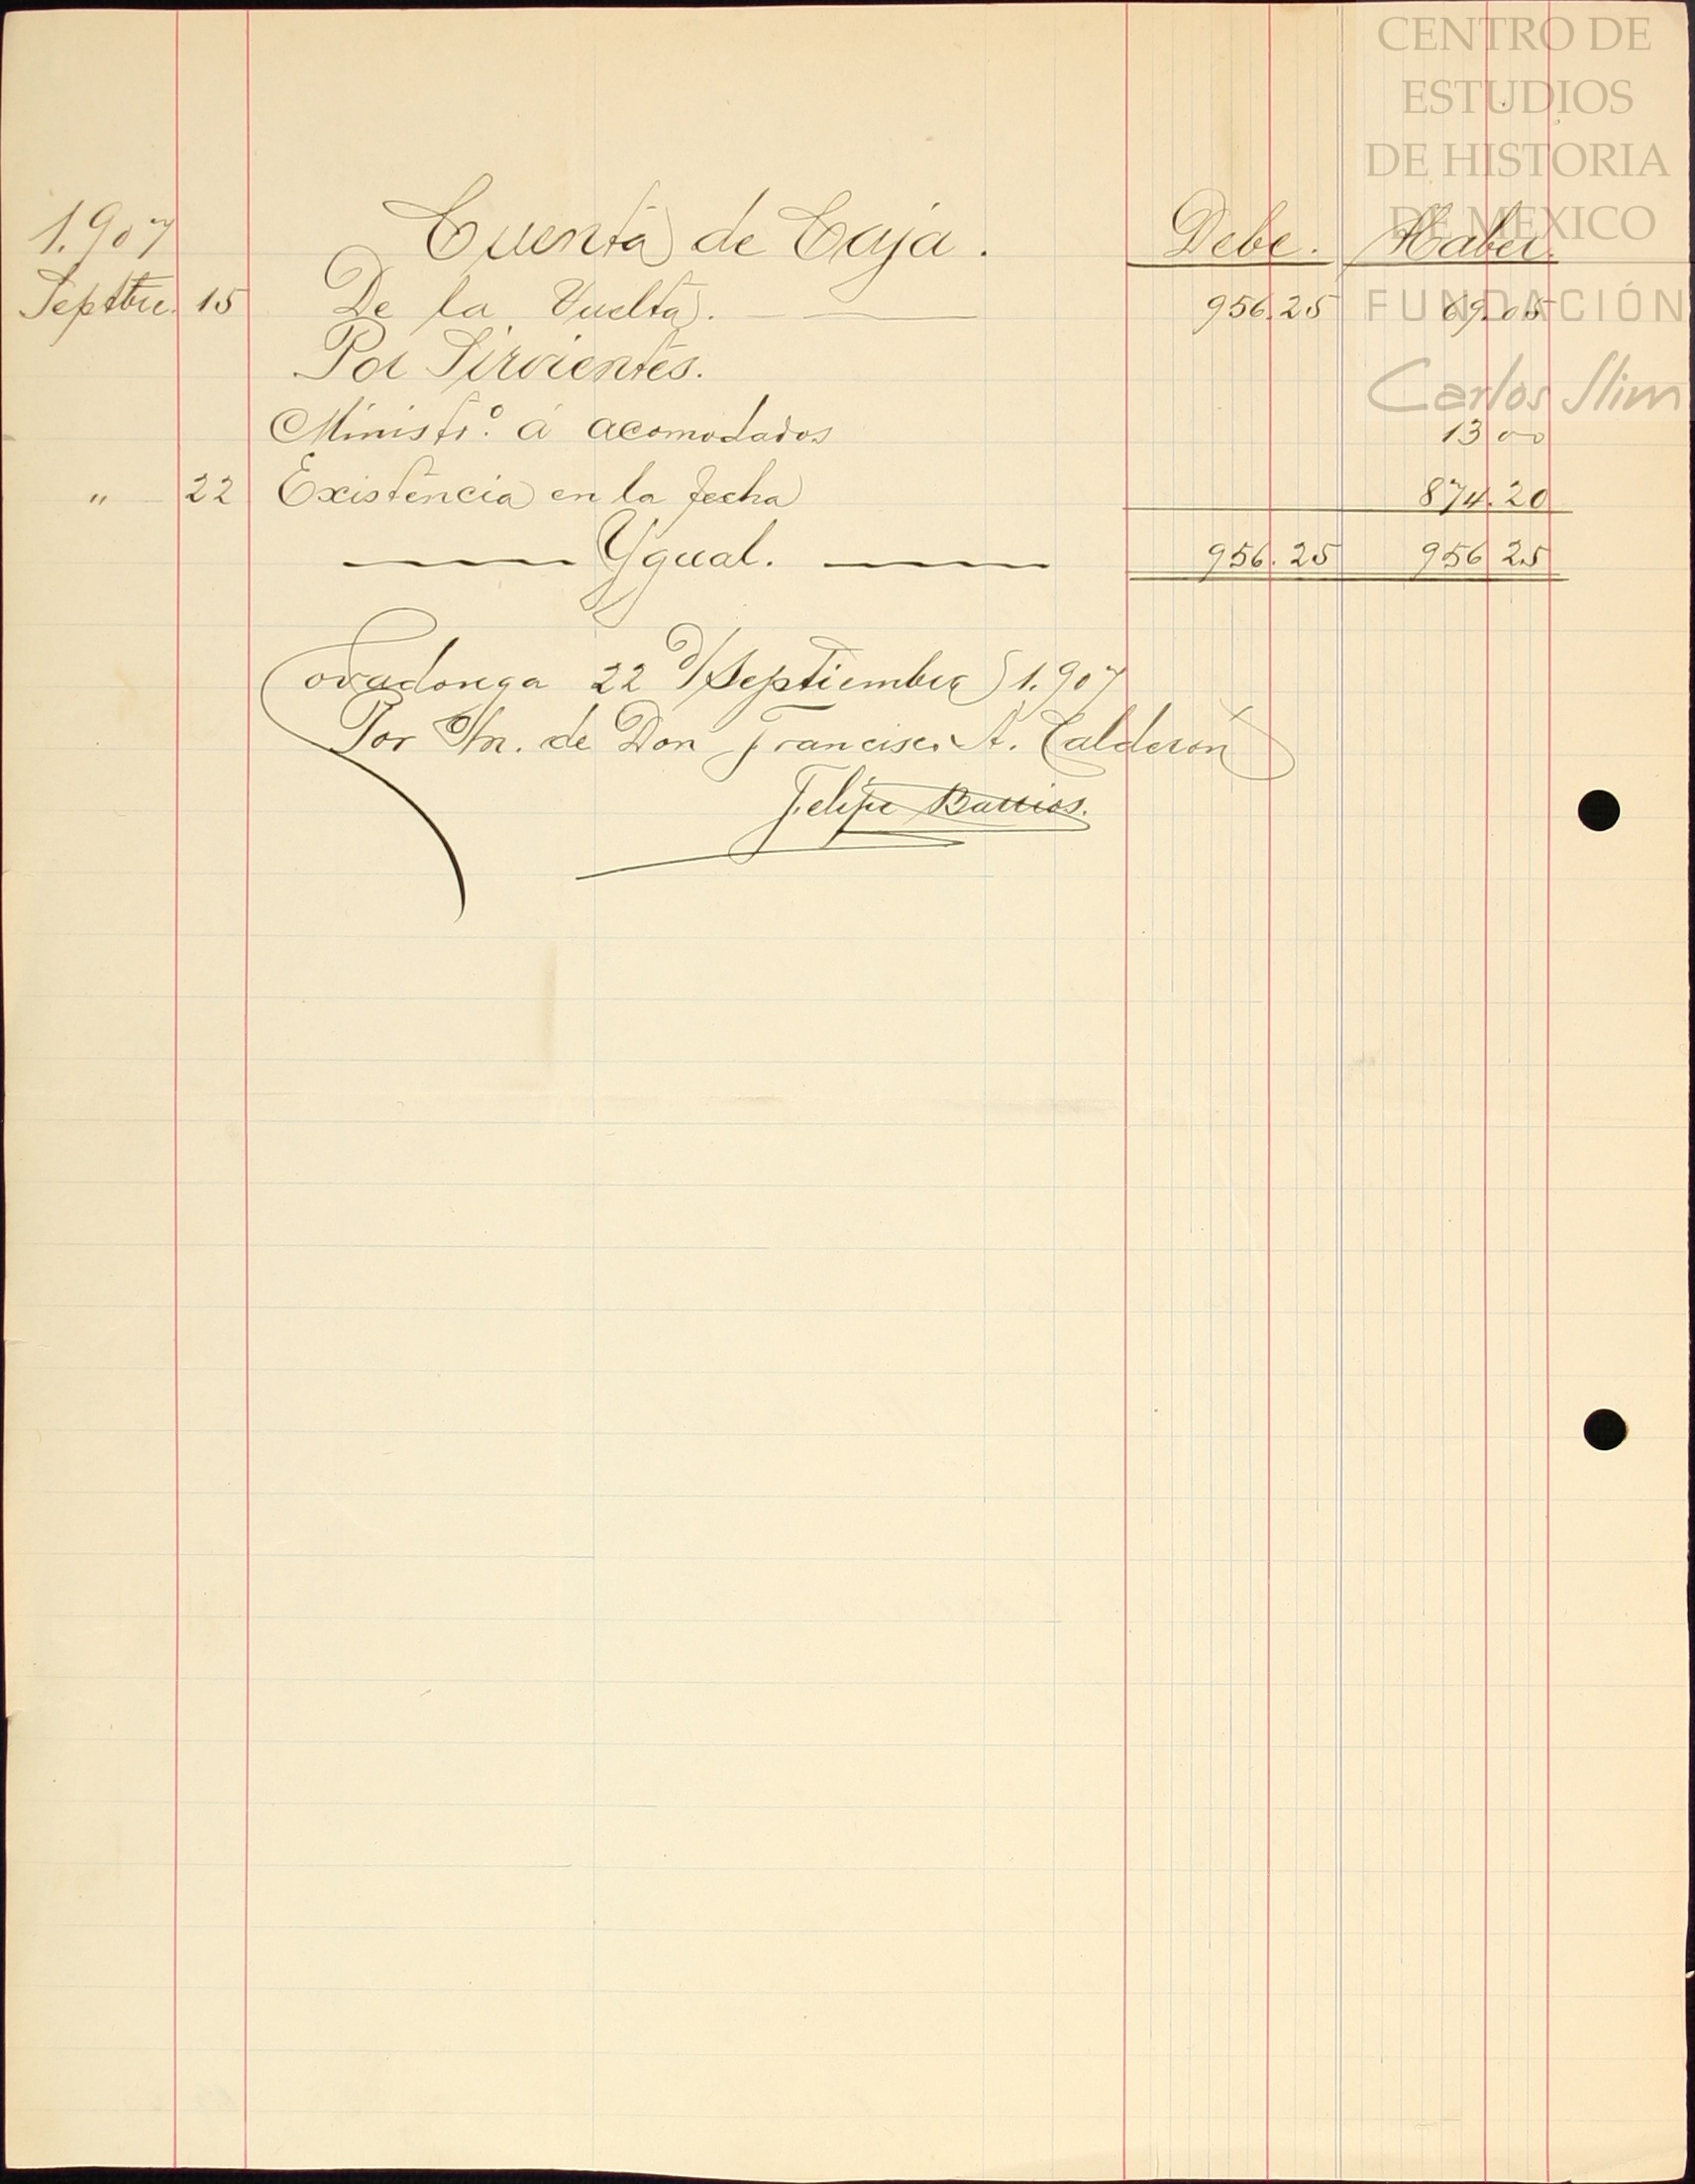 CENTRO DE
ESTUDIOS
DE HISTORIA
DE MEXICO
FUNDACIÓN
Carlos Slim
1.907 Cuenta de Caja. Debe. Haber.
Septbre. 15 De la Vuelta. 956.25 69.05
Por Sirvientes.
Ministro. á acomodados 13 00
" 22 Existencia en la fecha 874.20
Ygual. 956.25 956 25
Covadonga 22 d/Septiembre 1.907
Por O/n. de Don Francisco A. Calderón
Felipe Barrios.